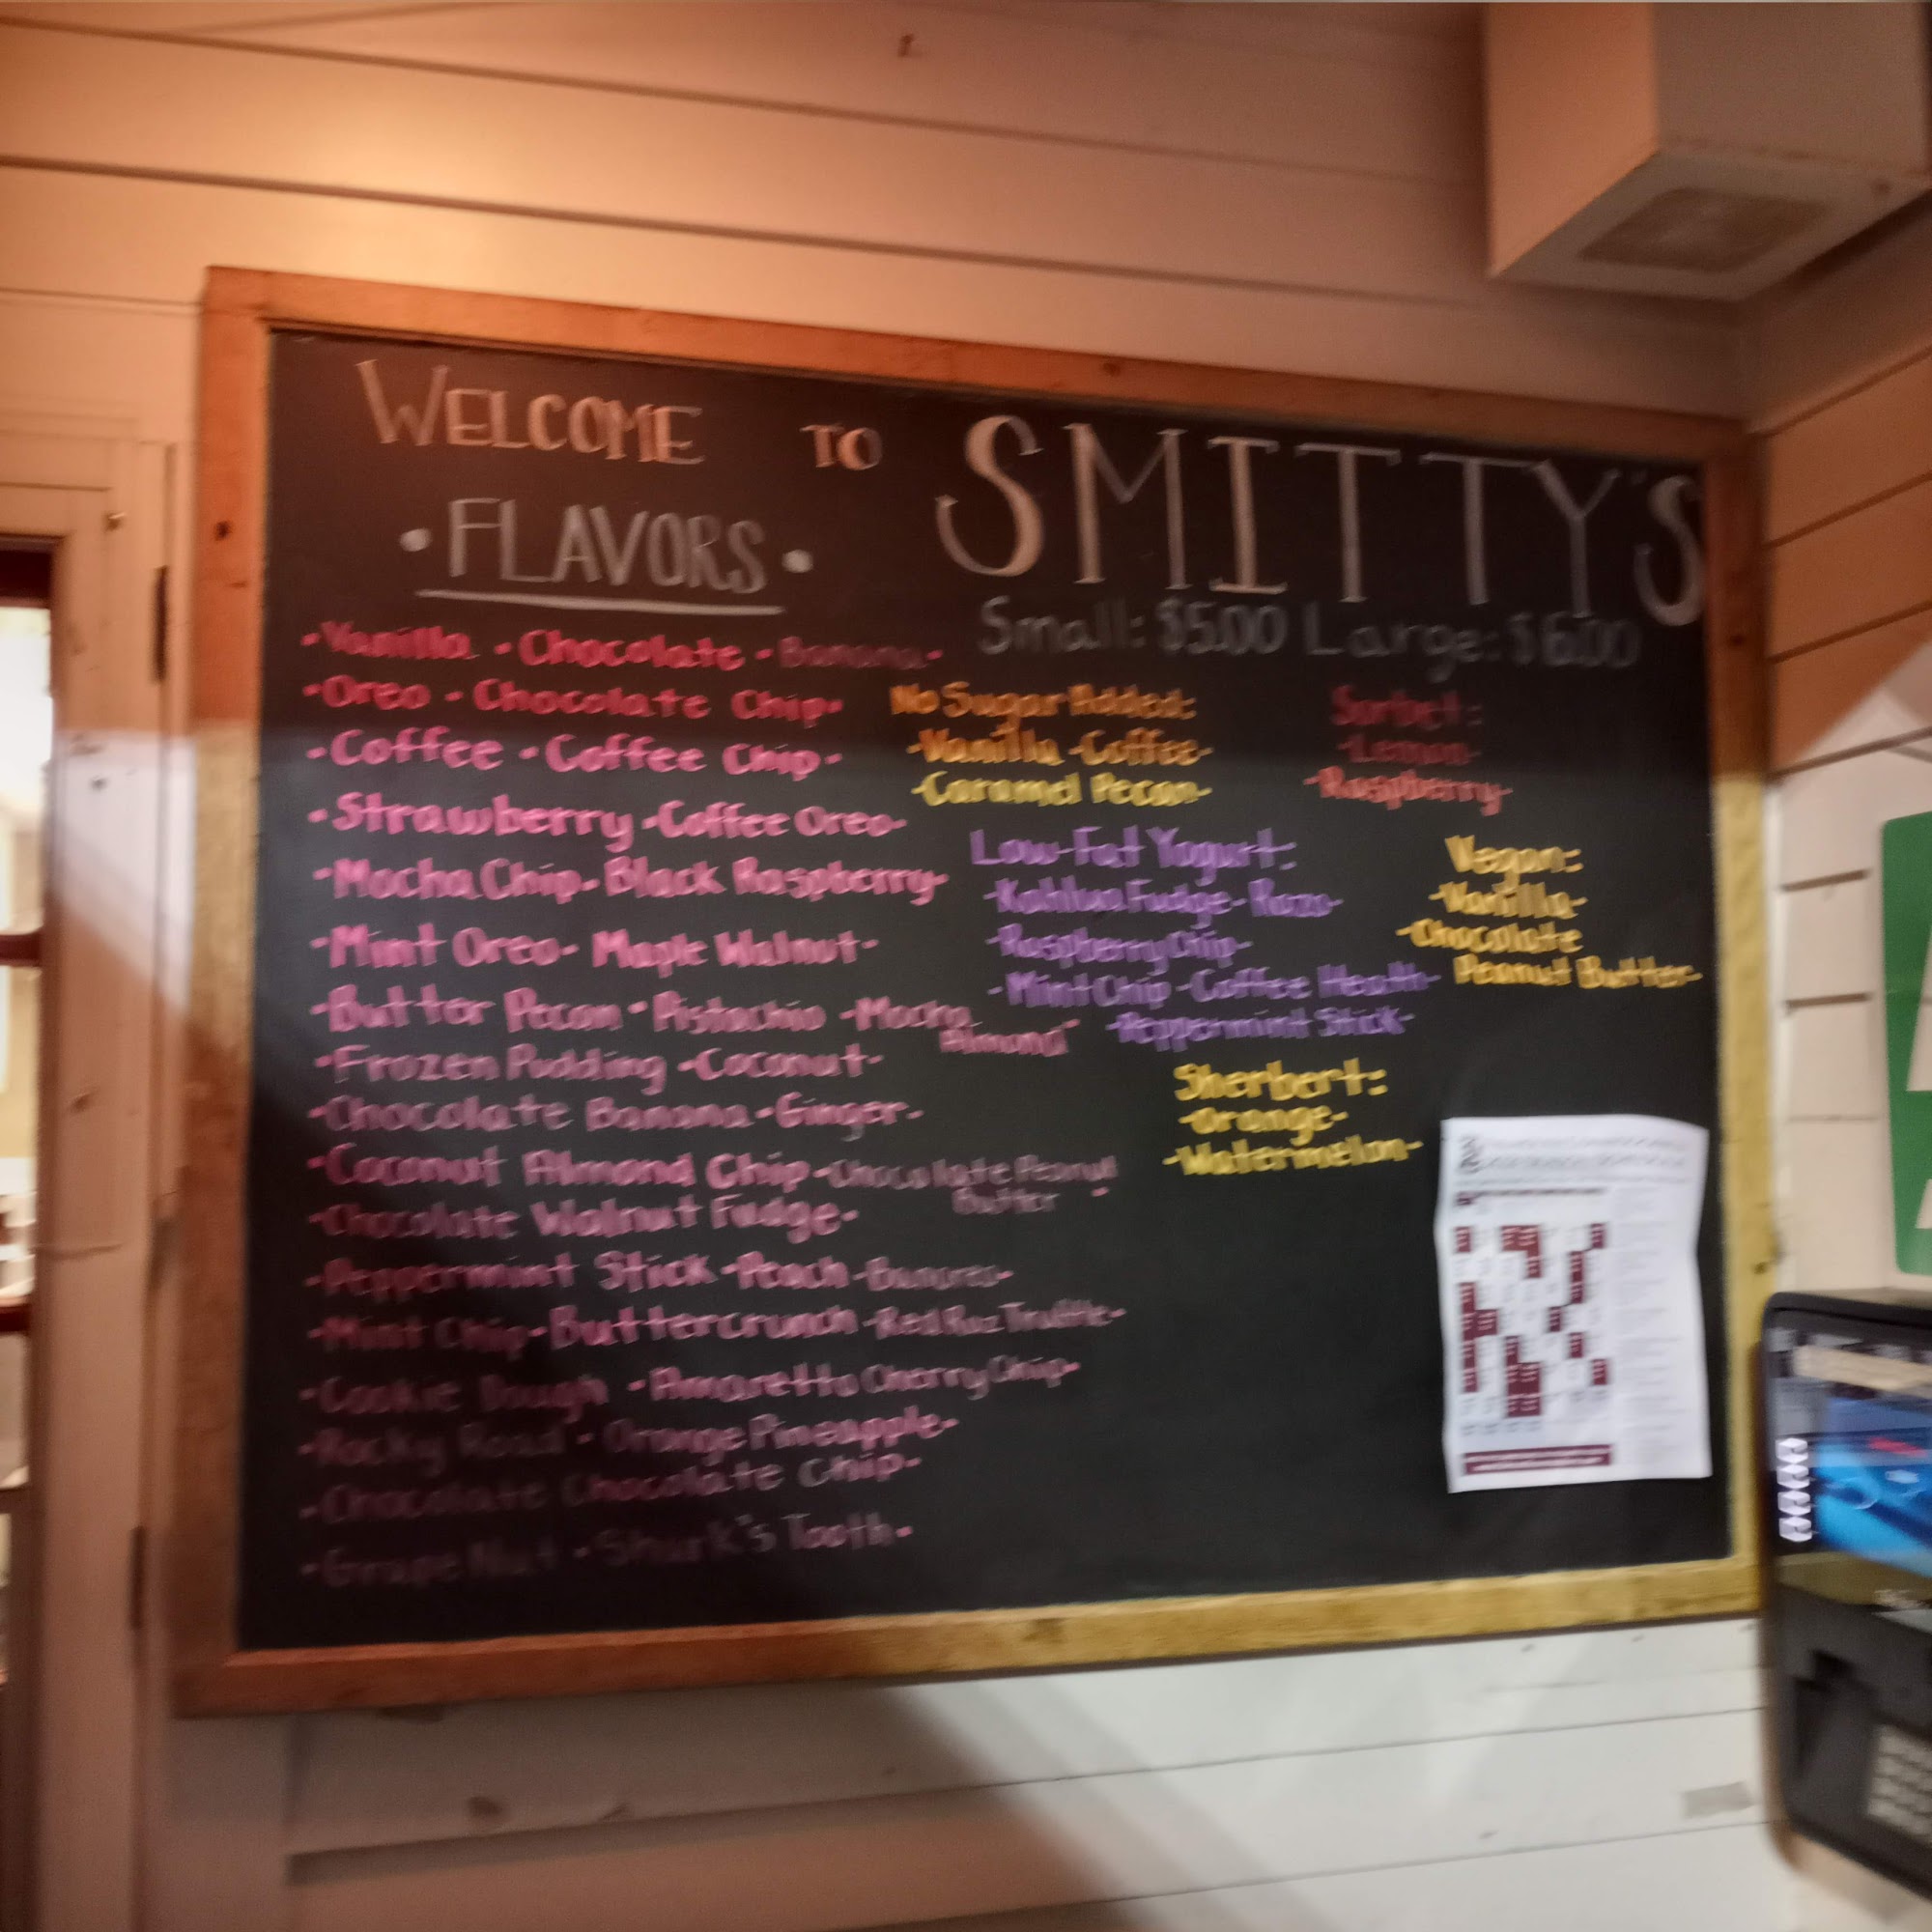 WELCOME TO SMITTY'S
• FLAVORS •
Small: $5.00 Large: $6.00
-Vanilla -Chocolate -Banana-
-Oreo - Chocolate Chip-
-Coffee -Coffee Chip-
-Strawberry -Coffee Oreo-
-Mocha Chip- Black Raspberry-
-Mint Oreo- Maple Walnut-
-Butter Pecan - Pistachio -Mocha
Almond-
-Frozen Pudding -Coconut-
-Chocolate Banana -Ginger-
-Coconut Almond Chip -Chocolate Peanut
Butter -
-Chocolate Walnut Fudge-
-Peppermint Stick -Peach -
-Mint Chip- Buttercrunch -Red Raz Truffle-
-Cookie Dough -Amaretto Cherry Chip-
-Rocky Road - Orange Pineapple-
-Chocolate Chocolate Chip-
-Grape Nut - Shark's Tooth-
No Sugar Added:
-Vanilla -Coffee-
-Caramel Pecan-
Sorbet:
-Lemon-
-Raspberry-
Low-Fat Yogurt:
-Kahlua Fudge- Razo-
-Raspberry Chip-
-Mint Chip -Coffee Heath-
-Peppermint Stick-
Vegan:
-Vanilla-
-Chocolate
Peanut Butter-
Sherbert:
-Orange-
-Watermelon-